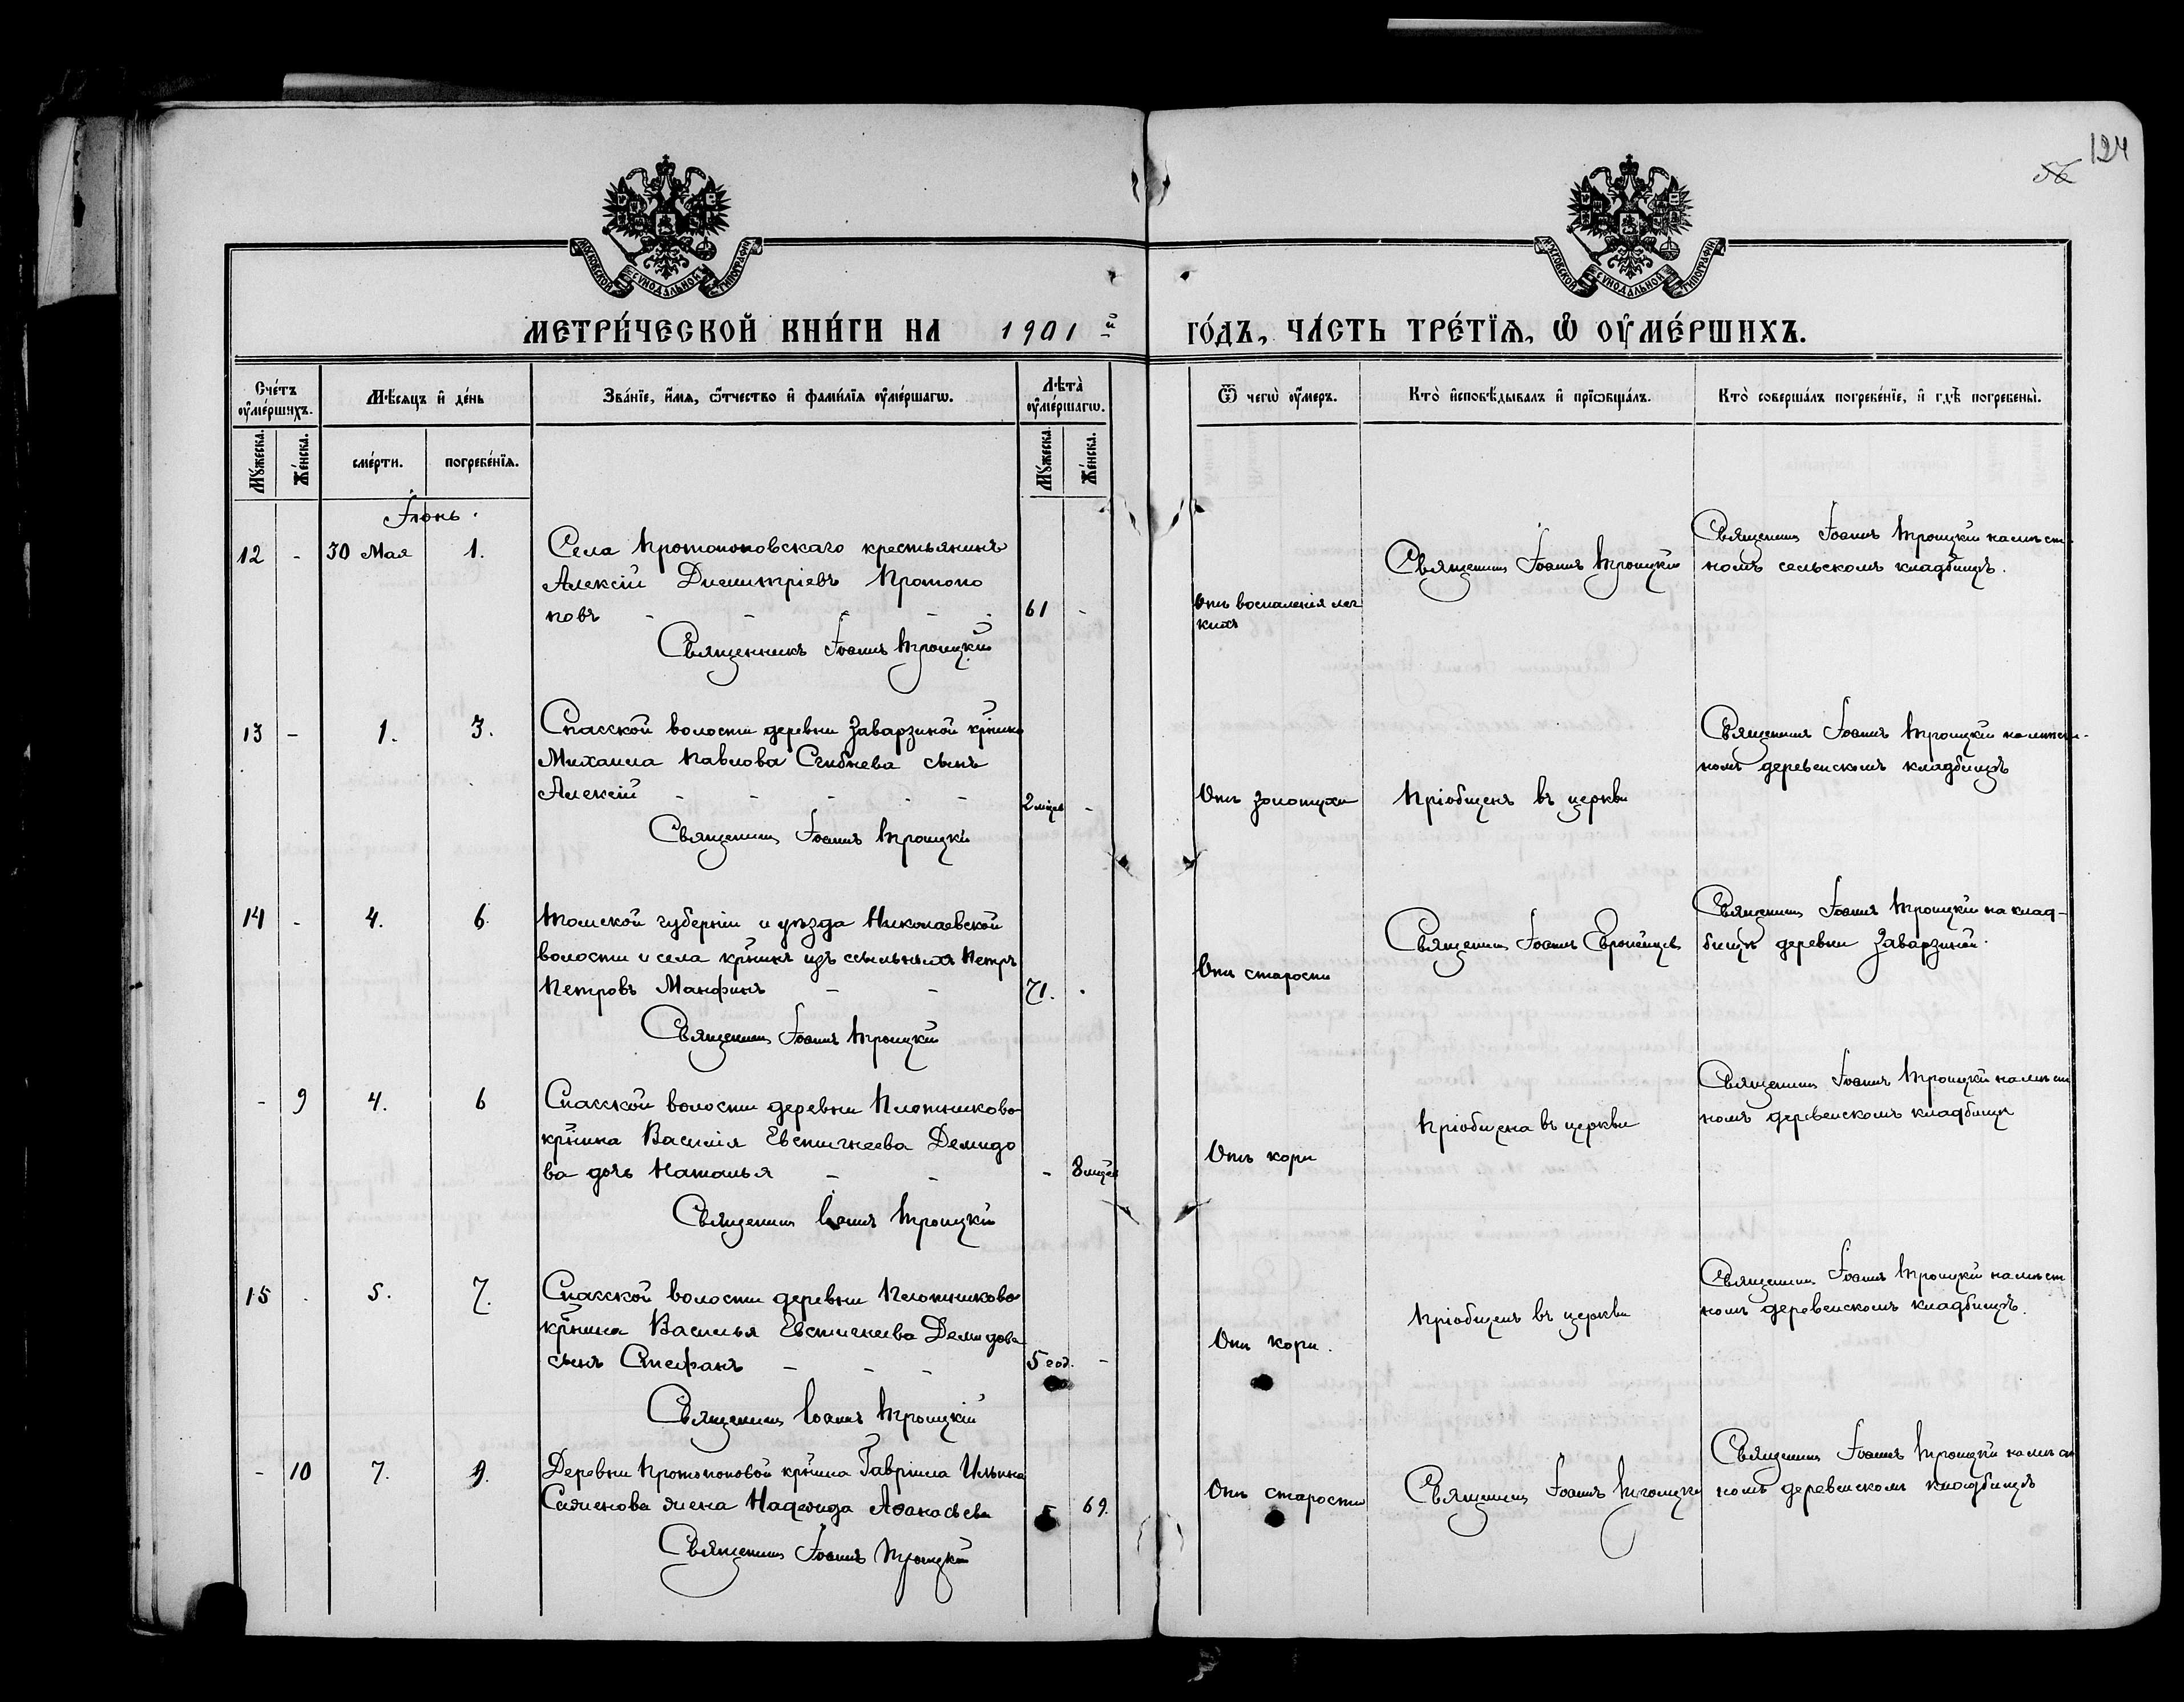 124
56
МОСКОВСКОЙ СУНОДАЛЬНОЙ ТИПОГРАФІИ
МОСКОВСКОЙ СУНОДАЛЬНОЙ ТИПОГРАФІИ
МЕТРИ́ЧЕСКОЙ КНИ́ГИ НА 1901й ГО́ДЪ, ЧА́СТЬ ТРЕ́ТІѦ, Ѡ ОУМЕ́РШИХЪ.
Сче́тъ оуме́ршихъ.
Мѣ́сяцъ и де́нь
Зва́нїе, и́мя, ѿтчество и фами́лїя оуме́ршагѡ.
Лѣта̀ оуме́ршагѡ.
Ѿ чегѡ̀ оу́меръ.
Кто̀ исповѣ́дывалъ и прїѡбща́лъ.
Кто̀ соверша́лъ погребе́нїе, и гдѣ̀ погребены̀.
Му́жеска.
Же́нска.
сме́рти.
погребе́нїя.
Му́жеска.
Же́нска.
Іюнь.
12 - 30 Мая 1. Села Протопоповскаго крестьянинъ
Алексій Димитріевъ Протопо
повъ - - - - 61 -
Священникъ Іоаннъ Троицкій
Отъ воспаленія лег
кихъ
Священникъ Іоаннъ Троицкій
Священникъ Іоаннъ Троицкій на мѣст
номъ сельскомъ кладбищѣ.
13 - 1. 3. Спасской волости деревни Заварзиной крнина
Михаила Павлова Сгибнева сынъ
Алексій - - - - - 2 мѣсяц -
Священникъ Іоаннъ Троицкій
Отъ золотухи
Пріобщенъ въ церкви
Священникъ Іоаннъ Троицкій на мѣст-
номъ деревенскомъ кладбищѣ
14 - 4. 6. Томской губерніи и уѣзда Николаевской
волости и села крнинъ изъ ссыльныхъ Петръ
Петровъ Манфинъ - - 71. -
Священникъ Іоаннъ Троицкій
Отъ старости
Священникъ Іоаннъ
Священникъ Іоаннъ Троицкій на клад-
бищѣ деревни Заварзиной.
- 9 4. 6 Спасской волости деревни Плотниково
крнина Василія Евстигнеева Демидо
ва дочь Наталья - - - 8 мѣсяц
Священникъ Іоаннъ Троицкій
Отъ кори
Пріобщена въ церкви
Священникъ Іоаннъ Троицкій на мѣст
номъ деревенскомъ кладбищѣ
15 - 5. 7. Спасской волости деревни Плотниково
крнина Василья Евстигнеева Демидова
сынъ Стефанъ - - - 5 год. -
Священникъ Іоаннъ Троицкій
Отъ кори.
Пріобщенъ въ церкви
Священникъ Іоаннъ Троицкій на мѣст
номъ деревенскомъ кладбищѣ.
- 10 7. 9. Деревни Протопоповой крнина Гавріила Ильина
Симонова жена Надежда Аѳанасьева 69.
Священникъ Іоаннъ Троицкій
Отъ старости
Священникъ Іоаннъ Троицкій
Священникъ Іоаннъ Троицкій на мѣст
номъ деревенскомъ кладбищѣ